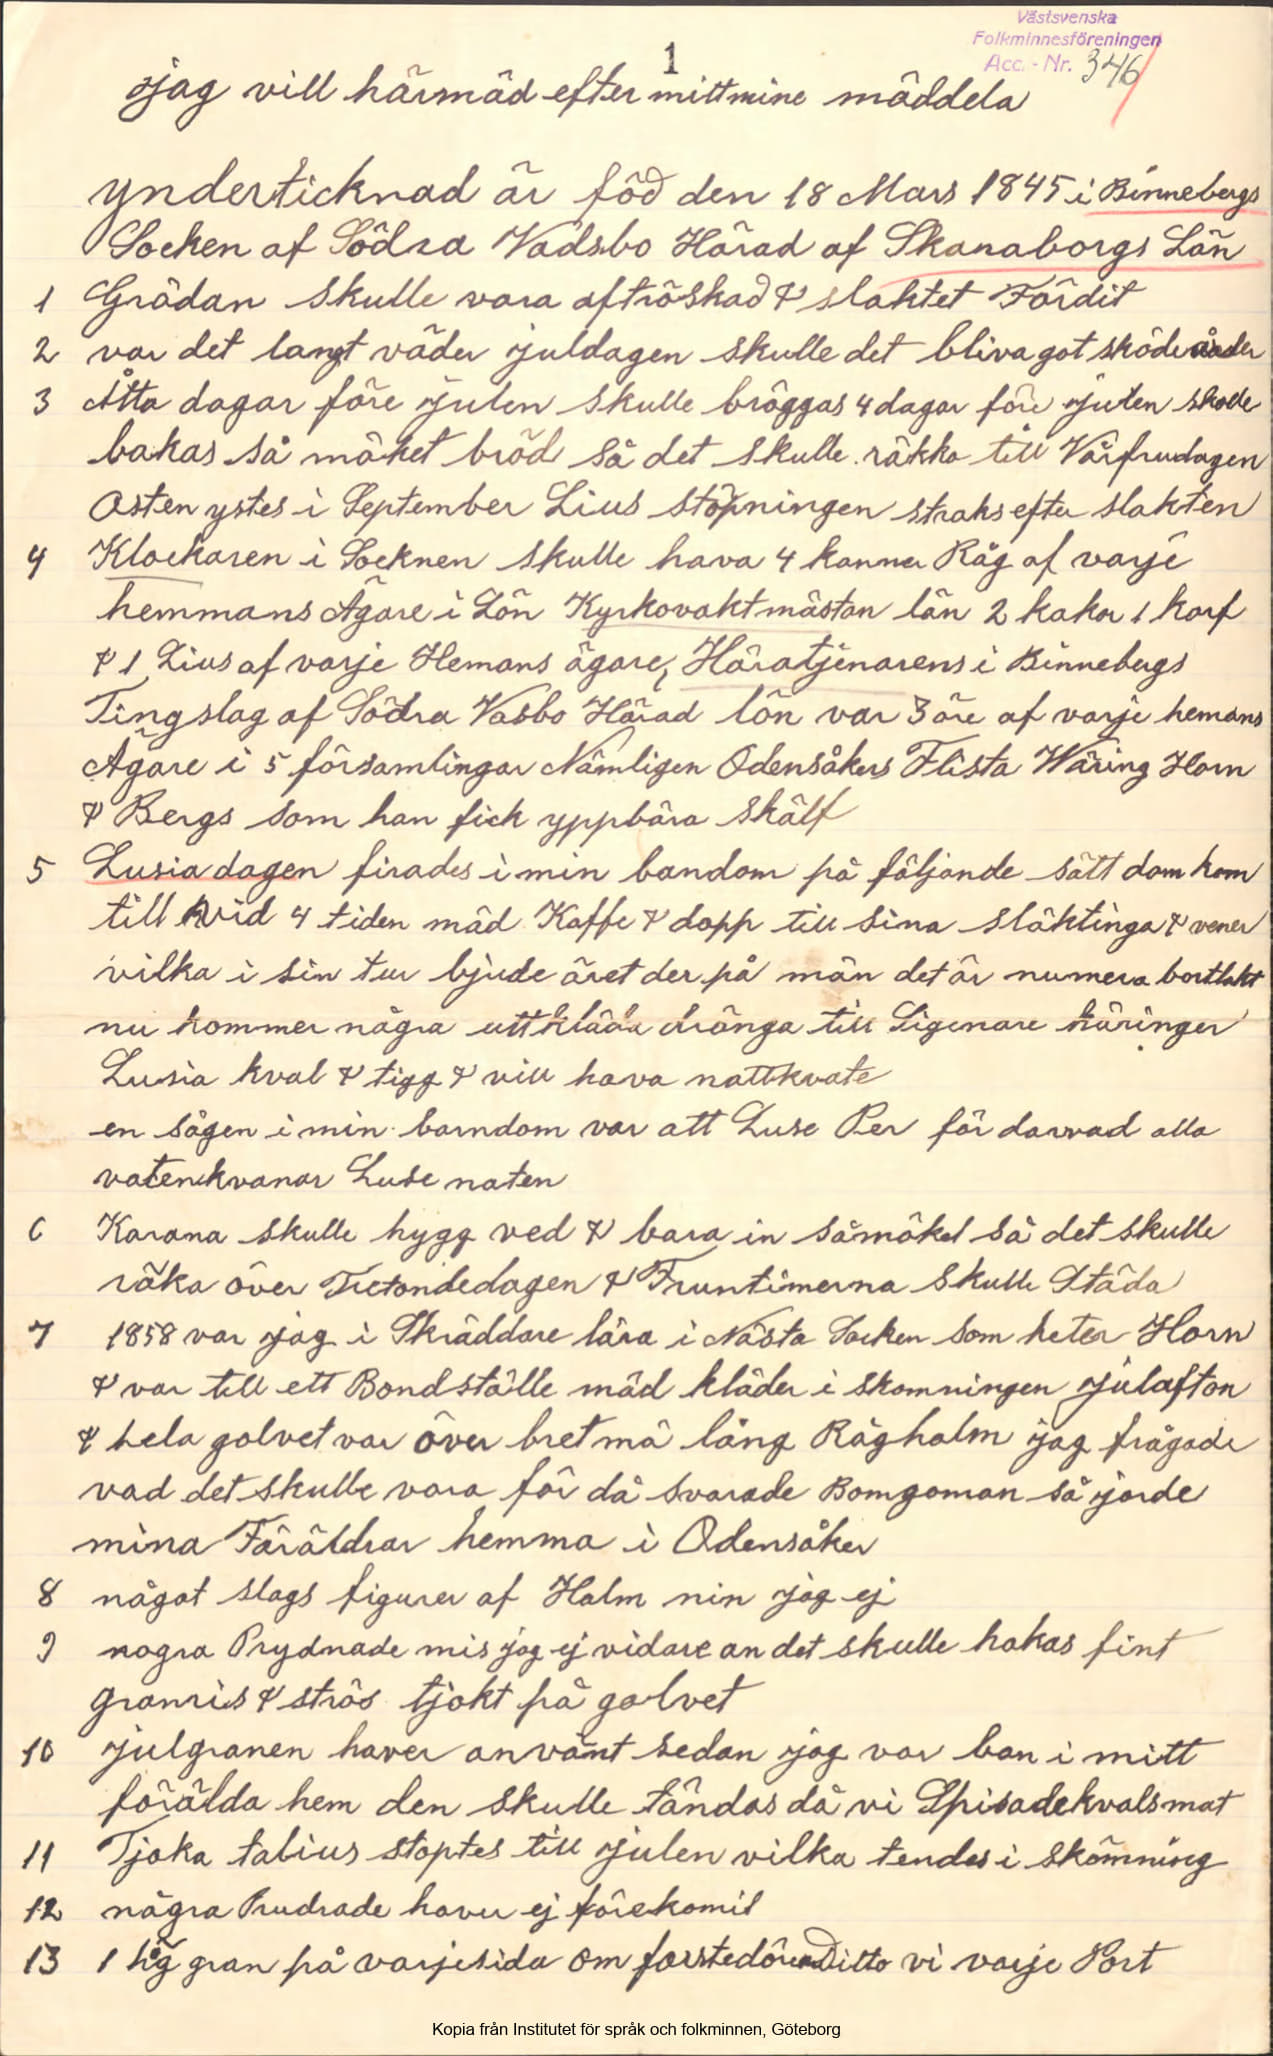 Västsvenska
Folkminnesföreningen
Acc. - Nr. 346
1
jag vill härmäd efter mitt mine mäddela
ynderticknad är föd den 18 Mars 1845 i Binnebergs
Socken af Södra Vadsbo Härad af Skaraborgs Län
1 Grödan skulle vara aftröskad & slaktet Färdit
2 var det langt väder juldagen skulle det bliva got sköde
3 Åtta dagar före julen skulle bröggas 4 dagar före julen skolle
bakas så mäket bröd så det skulle räkka till Vårfrudagen
Osten ystes i September Lius stöpningen straks efter slakten
4 Klockaren i Socknen skulle hava 4 kannor Råg af varje
hemmans Ägare i Lön Kyrkovaktmästan län 2 kakor 1 korf
& 1 Lius af varje Hemans ägare, Häratjenarens i Binnebergs
Tingslag af Södra Vasbo Härad lön var 3 öre af varje hemans
Ägare i 5 församlingar Nämligen Odensåkers Flista Wäring Horn
& Bergs som han fick yppbära skälf
5 Lusiadagen firades i min bandom på följande sätt dom kom
till vid 4 tiden mäd Kaffe & dopp till sina släktinga & vener
vilka i sin tur bjude äret der på män det är numera bortlakt
nu kommer några uttkläda dränga till Sigenare käringer
Lusia kval & tigg & vill hava nattkvate
en sägen i min barndom var att Luse Per för darvad alla
vatenkvanar Luse naten
6 Karana skulle hygg ved & bara in såmäket så det skulle
räka över Tretondedagen & Fruntimerna skulle Städa
7 1858 var jag i Skräddare lära i Nästa Socken som heter Horn
& var till ett Bondställe mäd kläder i skomningen julafton
& hela golvet var över bret mä lång Råghalm jag frågade
vad det skulle vara för då svarade Bomgoman så jorde
mina Föräldrar hemma i Odensåker
8 något slags figurer af Halm nin jag ej
9 nogra Prydnade mis jag ej vidare an det skulle hakas fint
granris & strös tjokt på golvet
10 julgranen haver använt sedan jag var ban i mitt
förälda hem den skulle tändas då vi Spisade kvalsmat
11 Tjoka talius stoptes till julen vilka tendes i skömning
12 några Prudrade haver ej förekomit
13 1 hög gran på varje sida om farstedören Ditto vi varje Port
Kopia från Institutet för språk och folkminnen, Göteborg